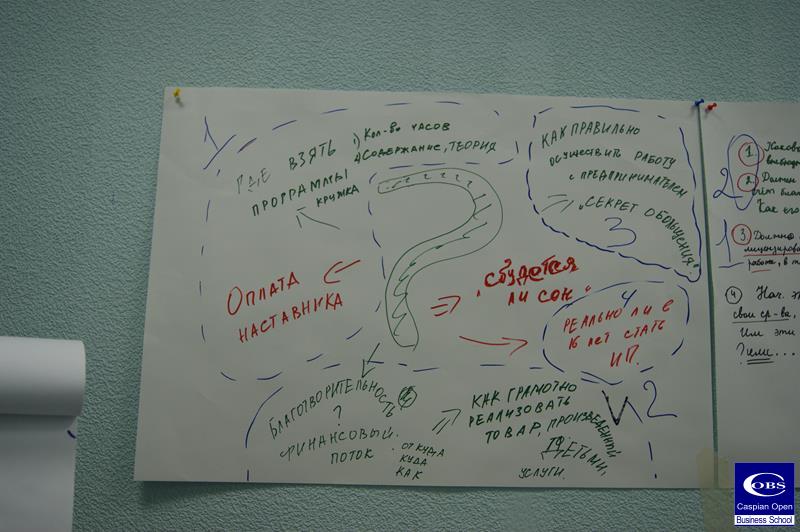 1
ГДЕ ВЗЯТЬ
ПРОГРАММЫ
КРУЖКА
1) КОЛ-ВО ЧАСОВ
2) СОДЕРЖАНИЕ, ТЕОРИЯ
КАК ПРАВИЛЬНО
ОСУЩЕСТВИТЬ РАБОТУ
С ПРЕДПРИНИМАТЕЛЕМ
"СЕКРЕТ ОБОЛЬЩЕНИЯ"
3
ОПЛАТА
НАСТАВНИКА
"СБУДЕТСЯ
ЛИ СОН"
4
РЕАЛЬНО ЛИ В
16 ЛЕТ СТАТЬ
ИП.
БЛАГОТВОРИТЕЛЬНОСТЬ
?
ФИНАНСОВЫЙ
ПОТОК
ОТКУДА
КУДА
КАК
КАК ГРАМОТНО
РЕАЛИЗОВАТЬ
ТОВАР, ПРОИЗВЕДЕННЫЙ
ДЕТЬМИ,
УСЛУГИ.
2
2
1
2 Должен
Как его
1
3 Должно
работа, в т
4 Нач.
свои ср-ва,
Им эти
? или...
COBS
Caspian Open
Business School